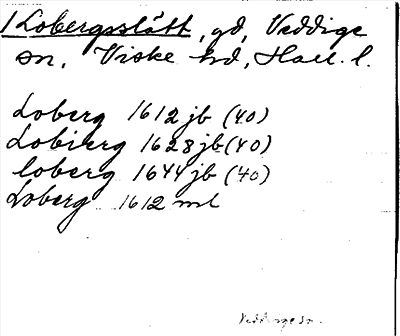 1 Lobergsslätt, gd, Veddige
sn, Viske hd, Hall. l.
Loberg 1612 jb (40)
Lobierg 1628 jb (40)
loberg 1644 jb (40)
Loberg 1612 ml
Veddige sn.